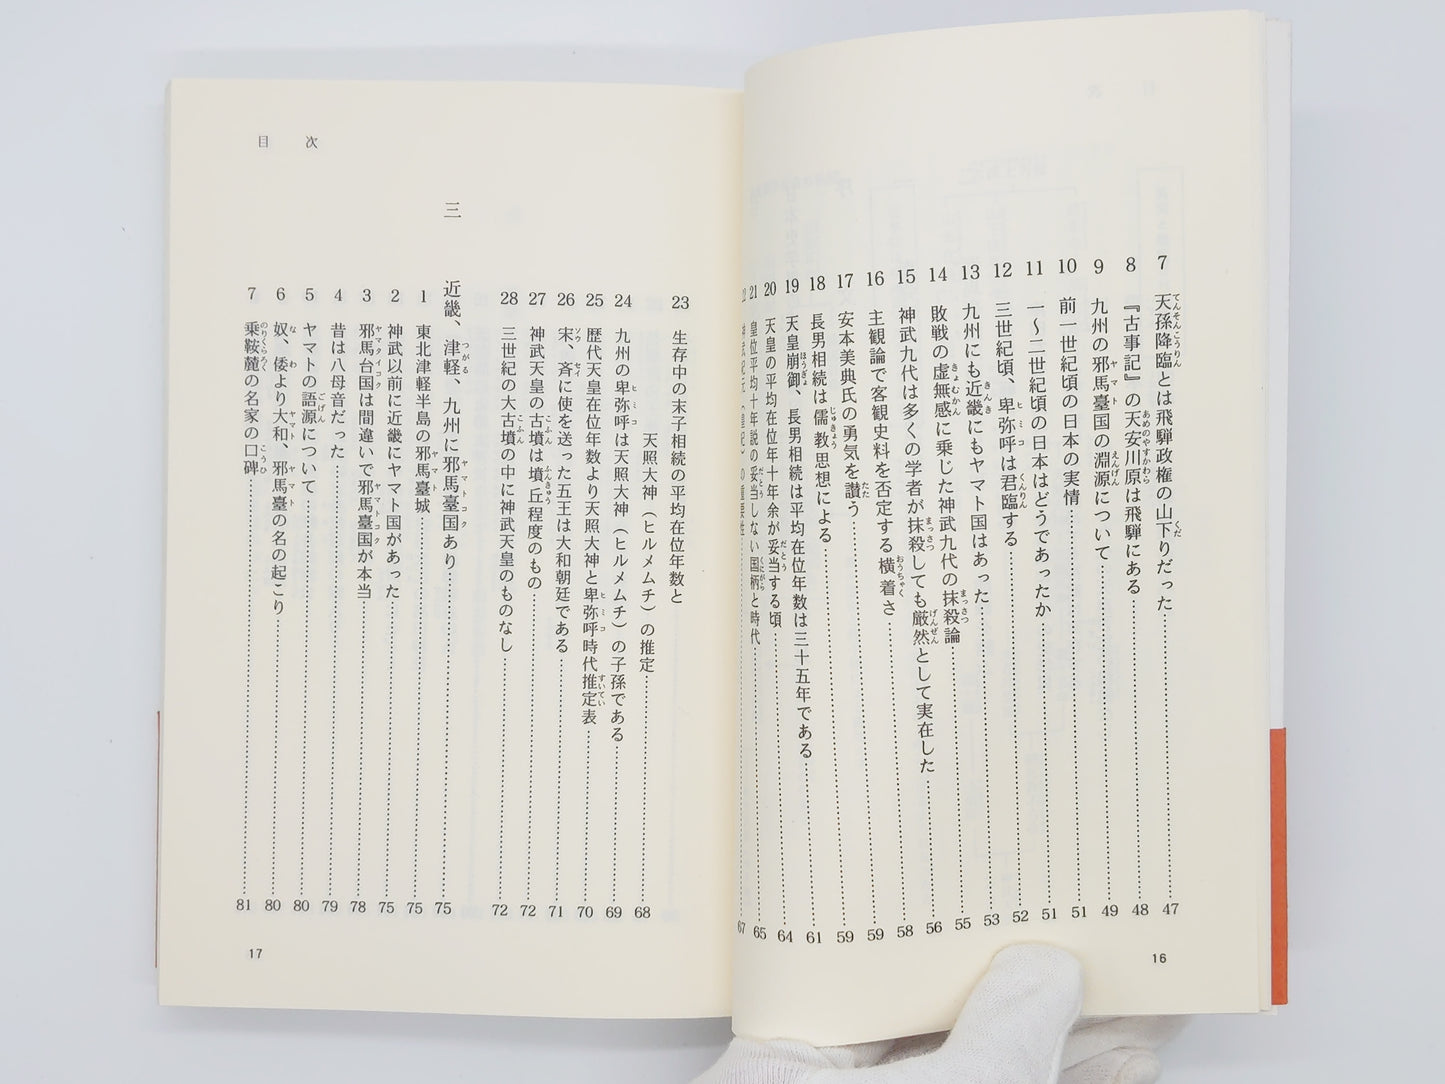 7 天孫降臨とは飛騨政権の山下りだった 47
8 『古事記』の天安川原は飛騨にある 48
9 九州の邪馬臺国の淵源について 49
10 前一世紀頃の日本の実情 51
11 一～二世紀頃の日本はどうであったか 51
12 三世紀頃、卑弥呼は君臨する 52
13 九州にも近畿にもヤマト国はあった 53
14 敗戦の虚無感に乗じた神武九代の抹殺論 55
15 神武九代は多くの学者が抹殺しても厳然として実在した 56
16 主観論で客観史料を否定する横着さ 58
17 安本美典氏の勇気を讃う 59
18 長男相続は儒教思想による 59
19 天皇崩御、長男相続は平均在位年数は三十五年である 61
20 天皇の平均在位年十年余が妥当する頃 64
21 皇位平均十年説の妥当しない国柄と時代 65
22 神武紀元（皇紀）の重要性 67
16
目次
23 生存中の末子相続の平均在位年数と
天照大神（ヒルメムチ）の推定 68
24 九州の卑弥呼は天照大神（ヒルメムチ）の子孫である 69
25 歴代天皇在位年数より天照大神と卑弥呼時代推定表 70
26 宋、斉に使を送った五王は大和朝廷である 71
27 神武天皇の古墳は墳丘程度のもの 72
28 三世紀の大古墳の中に神武天皇のものなし 72
三 近畿、津軽、九州に邪馬臺国あり 75
1 東北津軽半島の邪馬臺城 75
2 神武以前に近畿にヤマト国があった 75
3 邪馬台国は間違いで邪馬臺国が本当 78
4 昔は八母音だった 79
5 ヤマトの語源について 80
6 奴、倭より大和、邪馬臺の名の起こり 80
7 乗鞍麓の名家の口碑 81
17